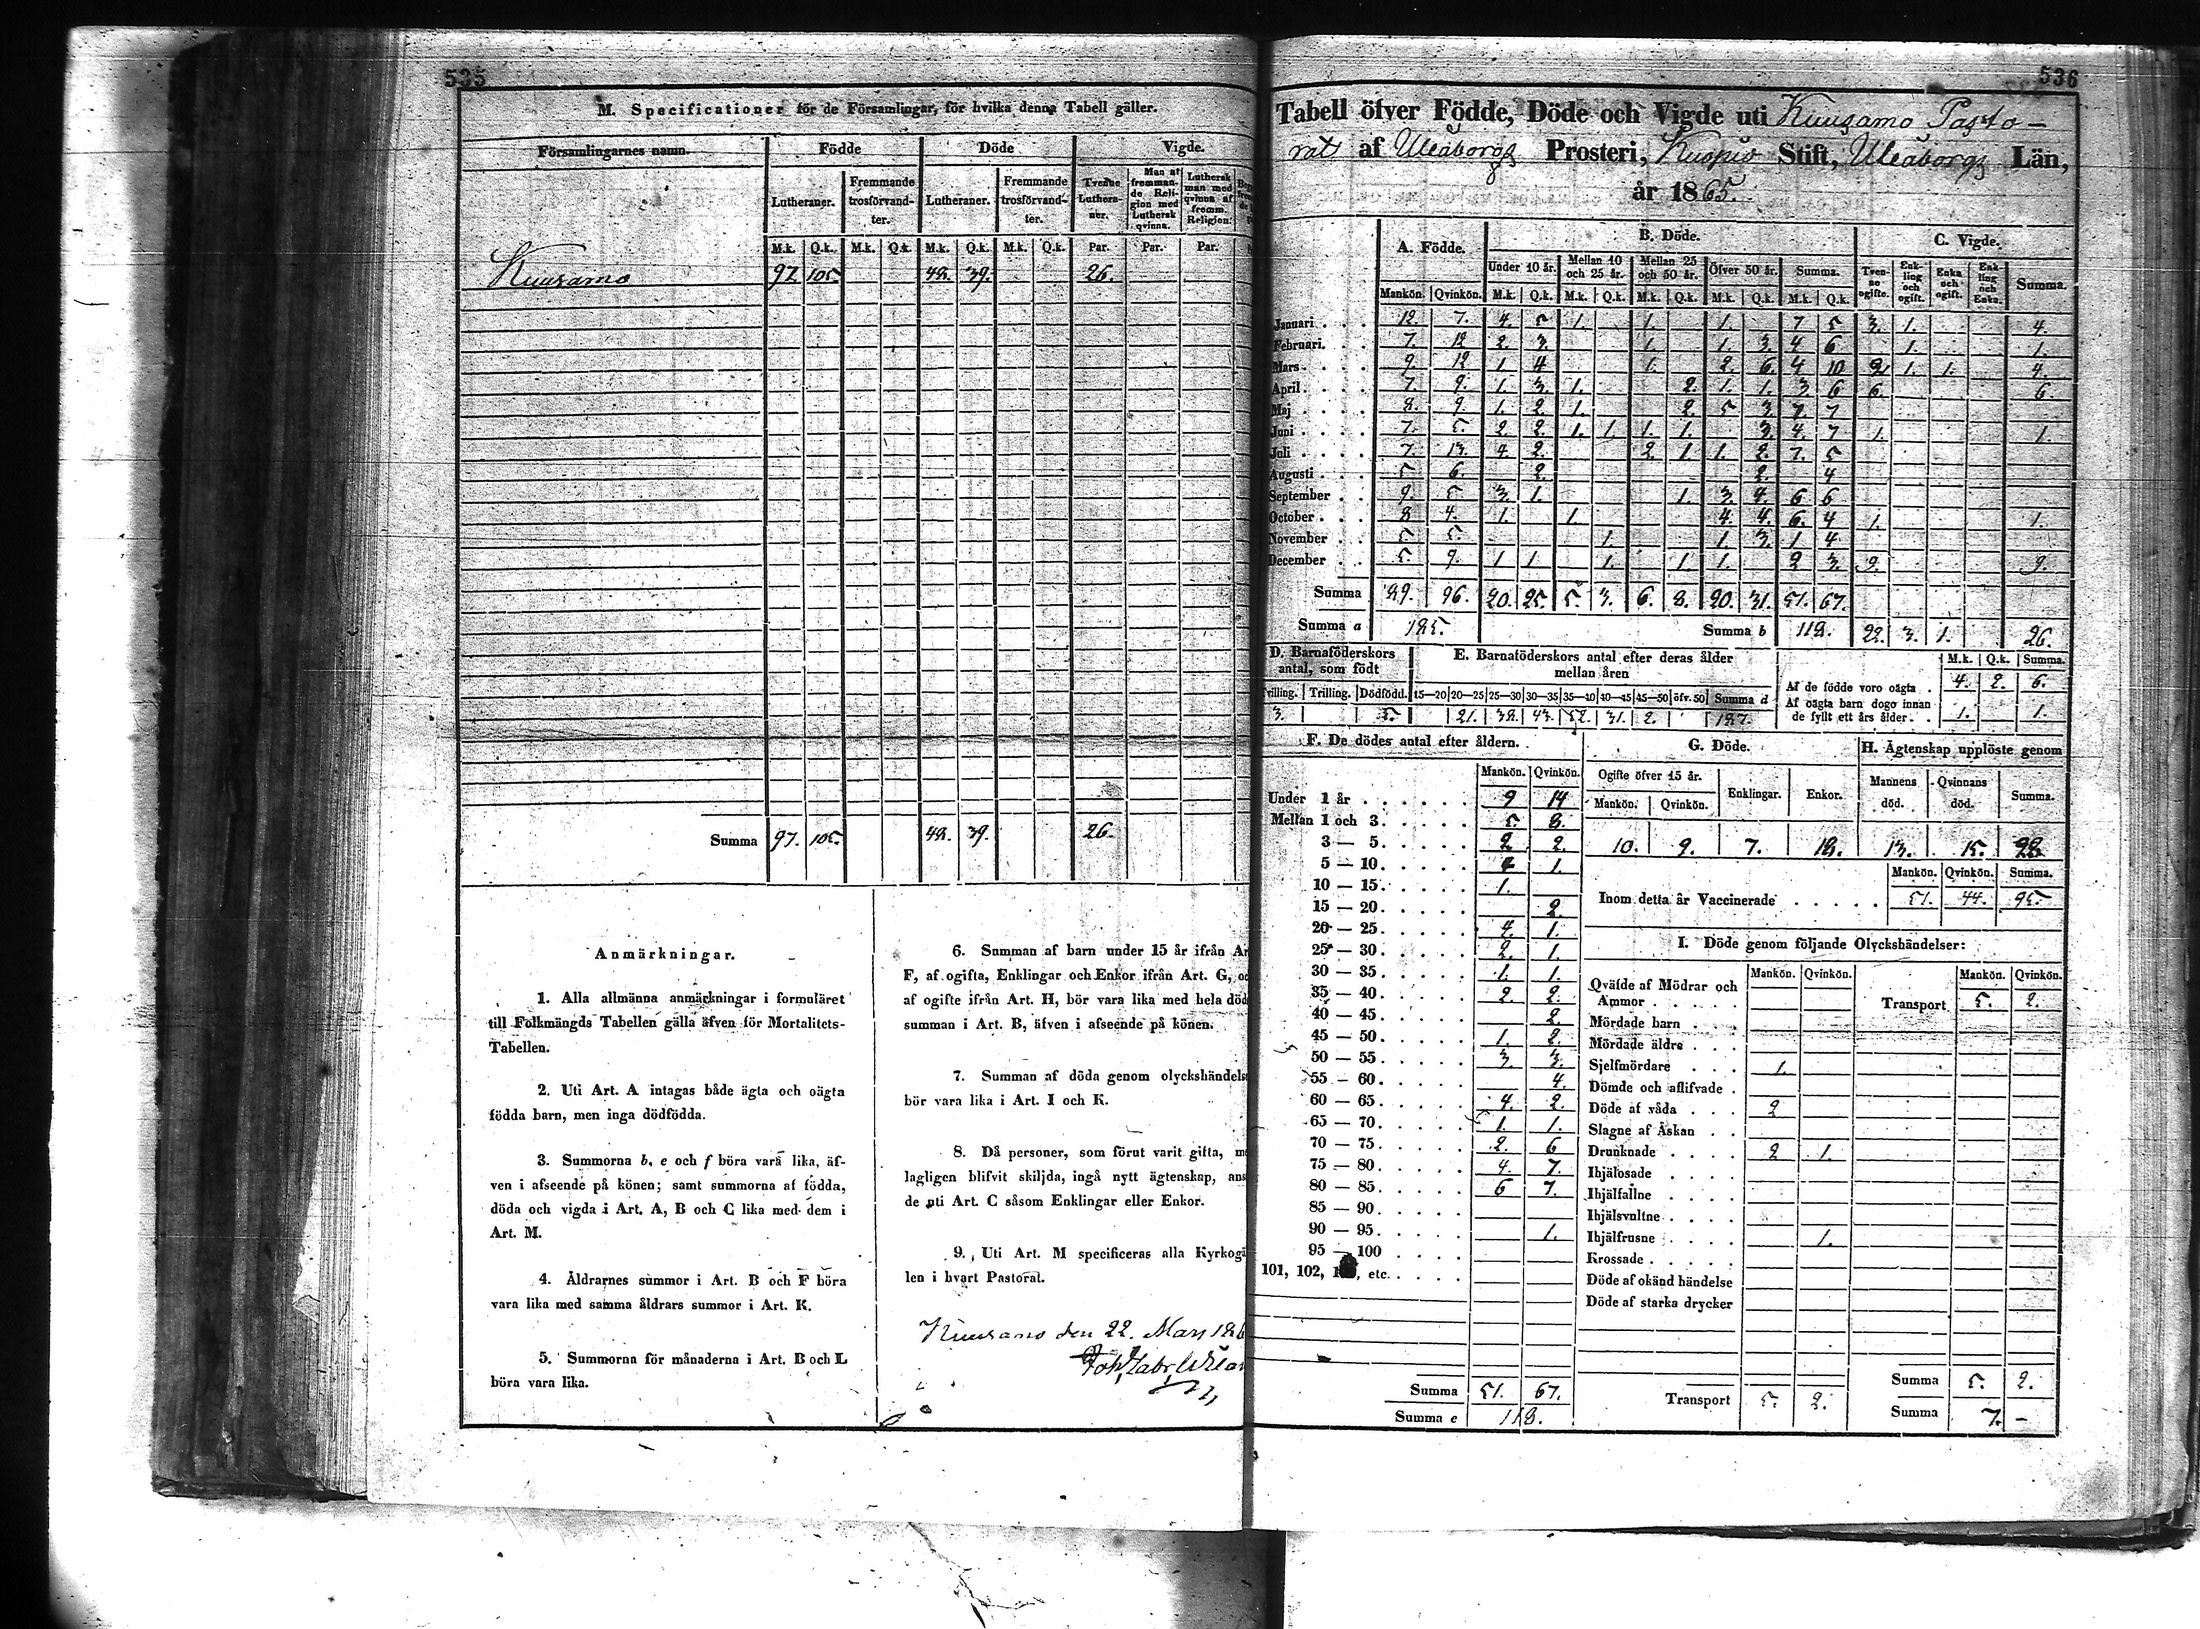 535
M. Specificationer för de Församlingar, för hvilka denna Tabell gäller.
Församlingarnes namn. Födde Döde Vigde.
Lutheraner. Fremmande trosförvandter. Lutheraner. Fremmande trosförvandter. Tvenne Lutheraner. Man af fremmande Religion med Luthersk qvinna. Luthersk man med qvinna af fremm. Religion.
M.k. Q.k. M.k. Q.k. M.k. Q.k. M.k. Q.k. Par. Par. Par.
Kuusamo 97. 105. 48. 39. 26.
Summa 97. 105. 48. 39. 26.
Anmärkningar.
1. Alla allmänna anmärkningar i formuläret
till Folkmängds Tabellen gälla äfven för Mortalitets-
Tabellen.
2. Uti Art. A intagas både ägta och oägta
födda barn, men inga dödfödda.
3. Summorna b, e och f böra vara lika, äf-
ven i afseende på könen; samt summorna af födda,
döda och vigda i Art. A, B och C lika med dem i
Art. M.
4. Åldrarnes summor i Art. B och F böra
vara lika med samma åldrars summor i Art. K.
5. Summorna för månaderna i Art. B och L
böra vara lika.
6. Summan af barn under 15 år ifrån
F, af ogifta, Enklingar och Enkor ifrån Art. G,
af ogifte ifrån Art. H, bör vara lika med hela
summan i Art. B, äfven i afseende på könen.
7. Summan af döda genom
bör vara lika i Art. I och K.
8. Då personer, som förut varit gifta,
lagligen blifvit skiljda, ingå nytt ägtenskap,
de uti Art. C såsom Enklingar eller Enkor.
9. Uti Art. M specificeras alla
len i hvart Pastorat.
Kuusamo den 22. Mars
536
Tabell öfver Födde, Döde och Vigde uti Kuusamo Pasto-
rat af Uleåborgs Prosteri, Kuopio Stift, Uleåborgs Län,
år 1865.
A. Födde. B. Döde. C. Vigde.
Under 10 år. Mellan 10 och 25 år. Mellan 25 och 50 år. Öfver 50 år. Summa. Tvenne ogifte. Enkling och ogift. Enka och ogift. Enkling och Enka. Summa.
Mankön. Qvinkön. M.k. Q.k. M.k. Q.k. M.k. Q.k. M.k. Q.k. M.k. Q.k.
Januari 12. 7. 4. 5 1. 1. 1. 7 5 3. 1. 4.
Februari. 7. 12 2. 3. 1. 1. 3. 4 6 1. 1.
Mars 9. 12 1. 4 1. 2. 6. 4 10 2. 1. 1. 4.
April 7. 9. 1. 3. 1. 2. 1. 1. 3. 6 6. 6.
Maj 8. 9. 1. 2. 1. 2. 5 3. 7. 7
Juni 7. 5. 2. 2. 1. 1. 1. 1. 3. 4. 7 1. 1.
Juli 7. 13. 4. 2. 2. 1. 1. 2. 7. 5
Augusti 5 6. 2. 2. 4
September 9. 5. 3. 1. 1. 3. 4. 6 6
October 8 4. 1. 1. 4. 4. 6. 4 1. 1.
November 5 5. 1. 1. 3. 1 4
December 5. 9. 1 1. 1. 1. 1. 2 3. 9. 9.
Summa 89. 96. 20. 25. 5. 3. 6. 8. 20. 31. 51. 67.
Summa a 185. Summa b 118. 22. 3. 1. 26.
D. Barnaföderskors antal, som födt
E. Barnaföderskors antal efter deras ålder mellan åren
M.k. Q.k. Summa.
Trilling. Dödfödd. 15—20 20—25 25—30 30—35 35—40 40—45 45—50 öfv. 50 Summa d
3. 5. 21. 38. 43. 52. 31. 2. 187.
Af de födde voro oägta 4. 2. 6.
Af oägta barn dogo innan
de fyllt ett års ålder 1. 1.
F. De dödes antal efter åldern.
Mankön. Qvinkön.
Under 1 år 9 14
Mellan 1 och 3 5. 8.
3 — 5 2 2.
5 — 10 4 1.
10 — 15 1.
15 — 20 2.
20 — 25 4. 1.
25 — 30 2. 1.
30 — 35 1. 1.
35 — 40 2. 2.
40 — 45 2.
45 — 50 1. 2.
50 — 55 3. 3.
55 — 60 4.
60 — 65 4. 2.
65 — 70 1. 1.
70 — 75 2. 6
75 — 80 4. 7.
80 — 85 6 7.
85 — 90
90 — 95 1.
95 — 100
101, 102, etc.
Summa 51. 67.
Summa e 118.
G. Döde.
Ogifte öfver 15 år. Enklingar. Enkor.
Mankön. Qvinkön.
10. 9. 7. 18.
H. Ägtenskap upplöste genom
Mannens död. Qvinnans död. Summa.
13. 15. 28.
Mankön. Qvinkön. Summa.
Inom detta år Vaccinerade 51. 44. 95.
I. Döde genom följande Olyckshändelser:
Mankön. Qvinkön. Mankön. Qvinkön.
Qväfde af Mödrar och
Ammor Transport 5. 2.
Mördade barn
Mördade äldre
Sjelfmördare 1.
Dömde och aflifvade
Döde af våda 2
Slagne af Åskan
Drunknade 2 1.
Ihjälosade
Ihjälfallne
Ihjälsvultne
Ihjälfrusne 1.
Krossade
Döde af okänd händelse
Döde af starka drycker
Summa 5. 2.
Transport 5. 2.
Summa 7. —